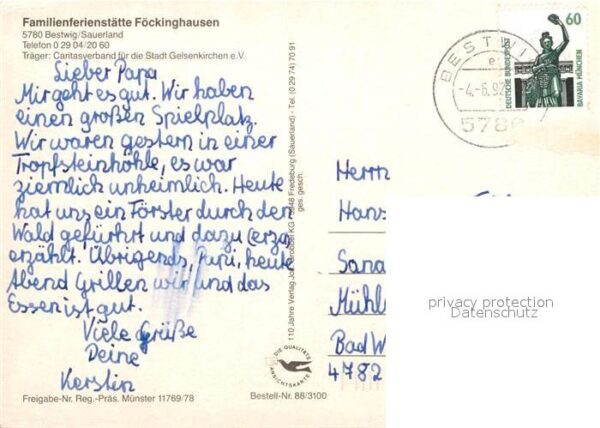 Familienferienstätte Föckinghausen
5780 Bestwig/Sauerland
Telefon 0 29 04/20 60
Träger: Caritasverband für die Stadt Gelsenkirchen e.V.
Lieber Papa
Mir geht es gut. Wir haben
einen großen Spielplatz.
Wir waren gestern in einer
Tropfsteinhöhle, es war
ziemlich unheimlich. Heute
hat uns ein Förster durch den
Wald geführht und dazu (erza
erzählt. Übrigends, Papi, heute
Abend Grillen wir und das
Essen ist gut.
Viele Grüße
Deine
Kerstin
Freigabe-Nr. Reg.-Präs. Münster 11769/78
Bestell-Nr. 88/3100
110 Jahre Verlag Jos. KG Fredeburg (Sauerland) - Tel. (0 29 74) 70 91
ges. gesch.
DIE QUALITÄTS
ANSICHTSKARTE
BESTWI
e
-4.-6.92
578
60
DEUTSCHE BUNDESPOST
BAVARIA MÜNCHEN
Herrn
Hans
Sana
Mühl
Bad W
4782
privacy protection
Datenschutz